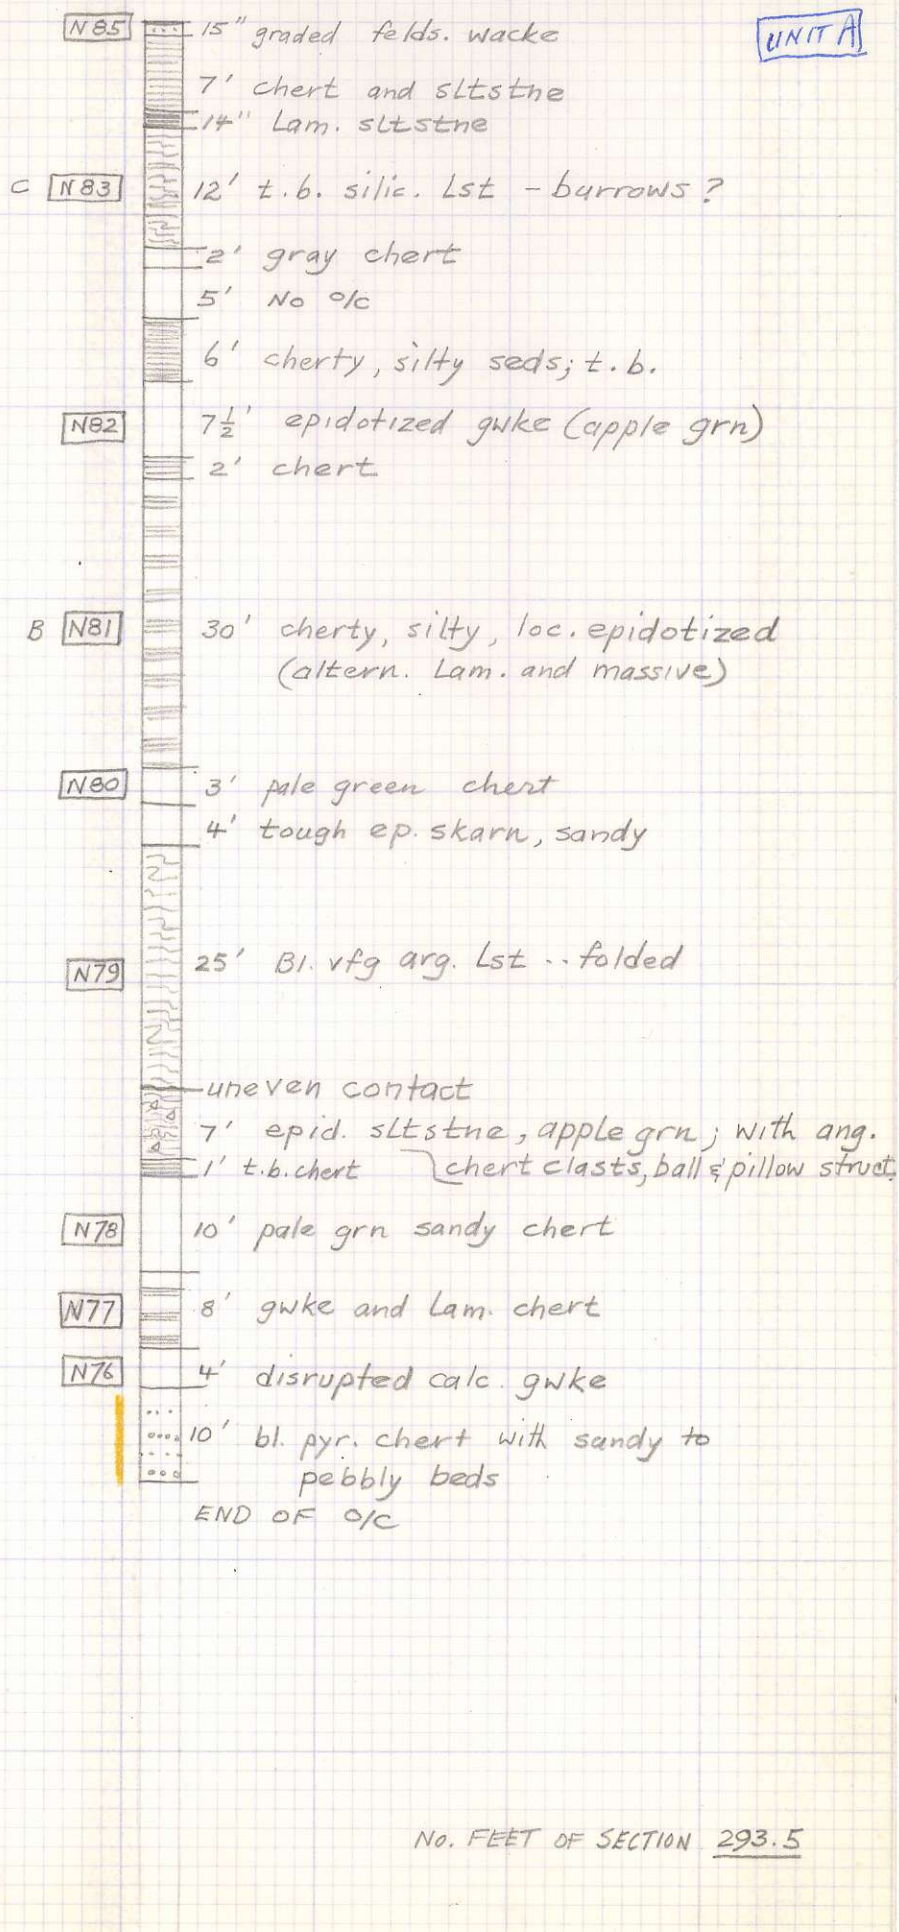 N85 15" graded felds. wacke UNIT A
7' chert and sltstne
14" Lam. sltstne
C N83 12' t.b. silic. Lst - burrows?
2' gray chert
5' No o/c
6' cherty, silty seds; t.b.
N82 7½' epidotized gwke (apple grn)
2' chert
B N81 30' cherty, silty, loc. epidotized
(altern. Lam. and massive)
N80 3' pale green chert
4' tough ep. skarn, sandy
N79 25' Bl. vfg arg. Lst -- folded
uneven contact
7' epid. sltstne, apple grn; with ang.
1' t.b. chert chert clasts, ball & pillow struct.
N78 10' pale grn sandy chert
N77 8' gwke and Lam. chert
N76 4' disrupted calc. gwke
10' bl. pyr. chert with sandy to
pebbly beds
END OF O/C
No. FEET OF SECTION 293.5